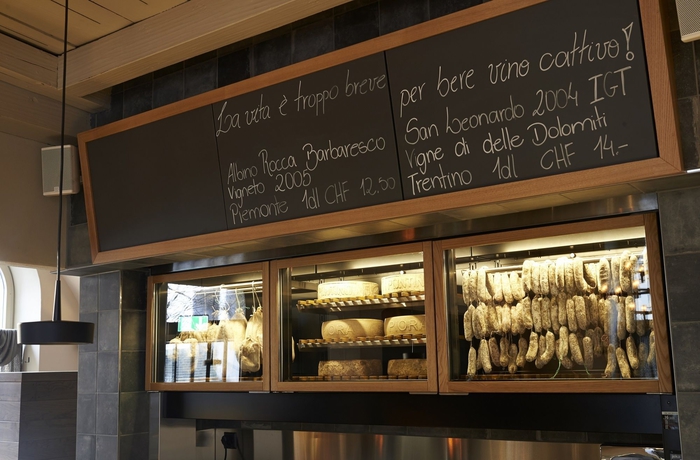 La vita è troppo breve
per bere vino cattivo!
Albino Rocca Barbaresco
Vigneto 2005
Piemonte 1dl CHF 12.50
San Leonardo 2004 IGT
Vigne di delle Dolomiti
Trentino 1dl CHF 14.-